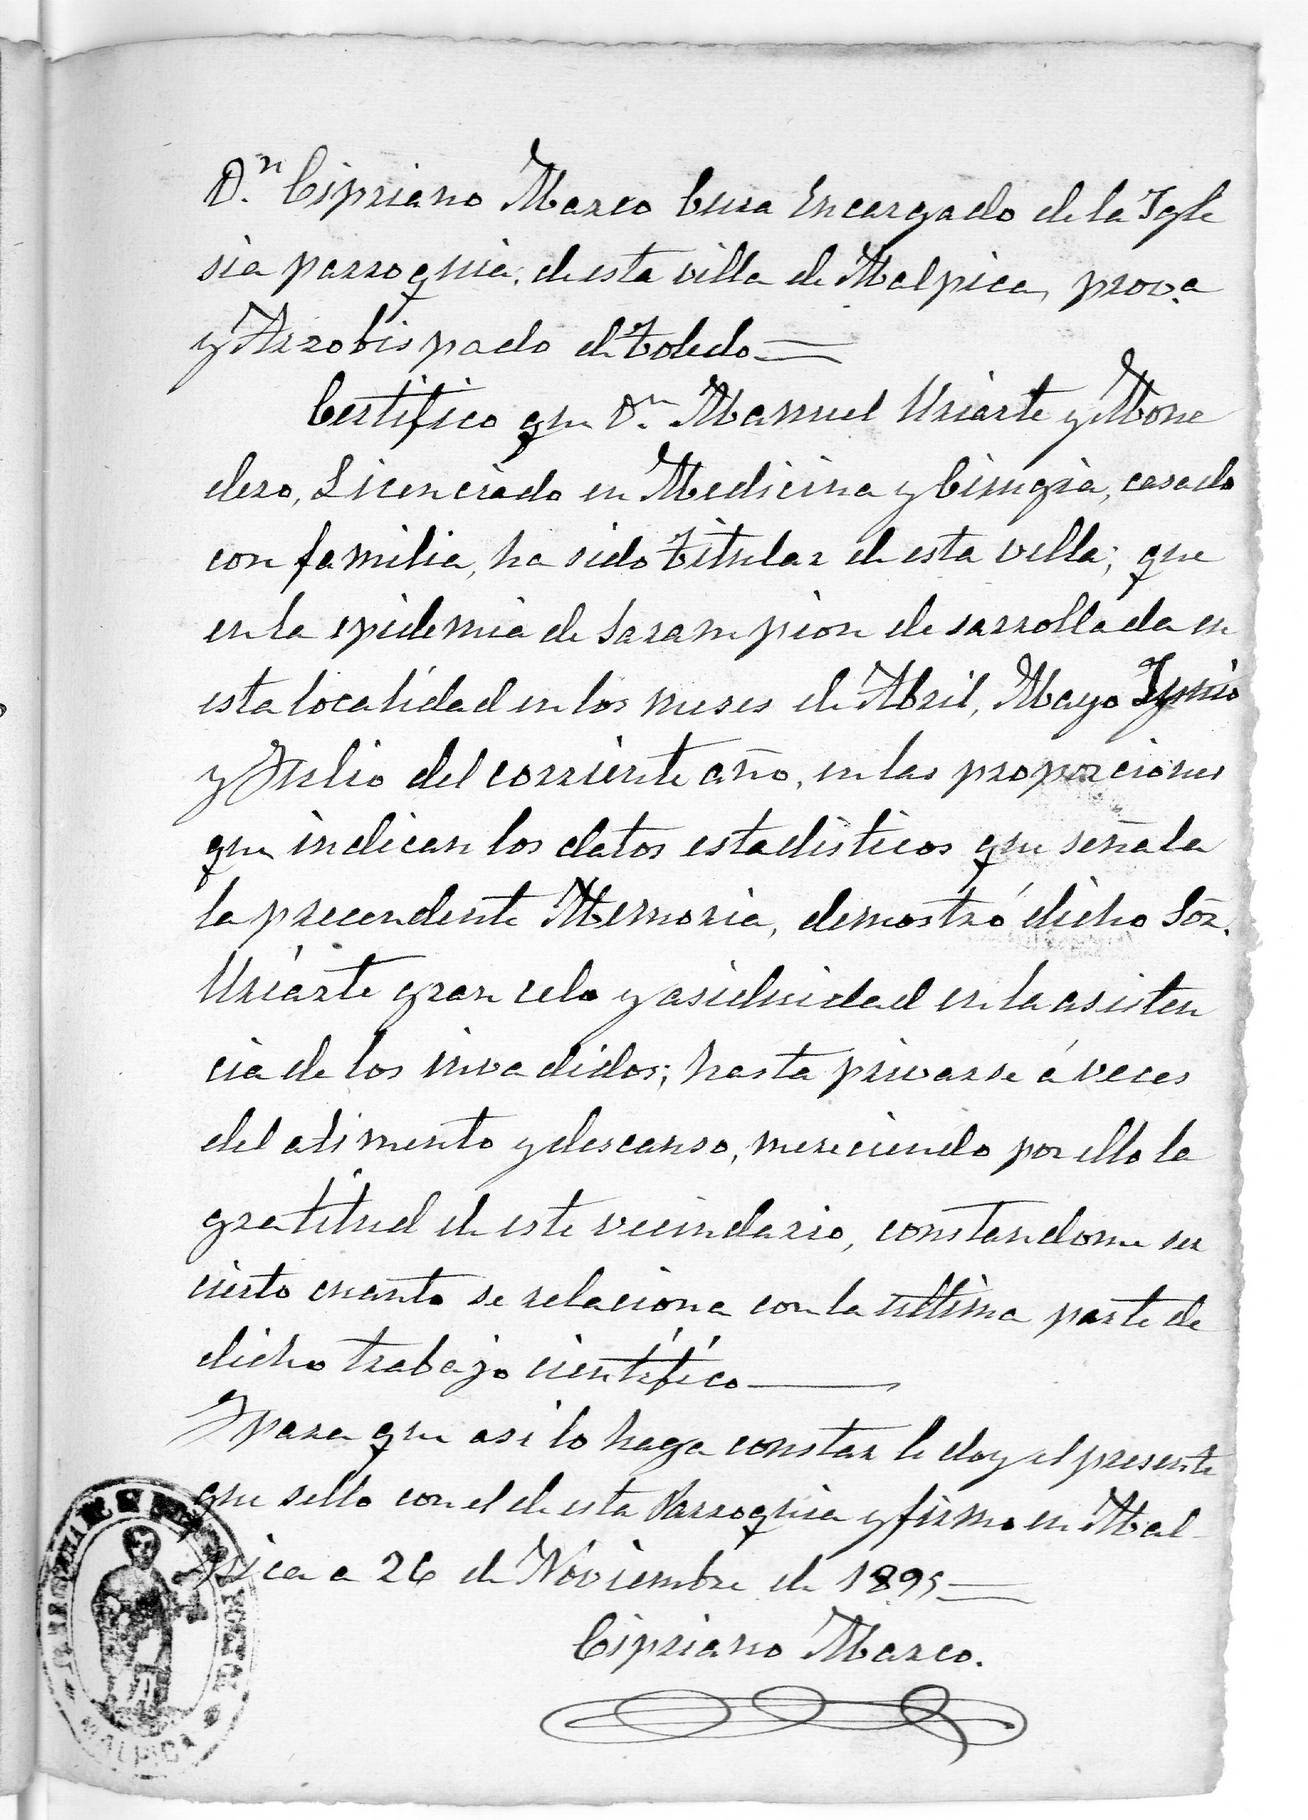 D.ⁿ Cipriano Marco Cura Encargado de la Igle
sia parroquia, de esta villa de Malpica, prov.a
y Arzobispado de Toledo.=
Certifico que Dⁿ. Manuel Uriarte y Mone
dero, Licenciado en Medicina y Cirugia, casado
con familia, ha sido titular de esta villa; que
en la epidemia de Sarampion desarrollada en
esta localidad en los meses de Abril, Mayo Junio
y Julio del corriente año, en las proporciones
que indican los datos estadisticos que señala
la precendente Memoria, demostró dicho Sor.
Uriarte gran celo y asiduidad en la asisten
cia de los invadidos; hasta privarse á veces
del alimento y descanso, mereciendo por ello la
gratitud de este vecindario, constandome ser
cierto cuanto se relaciona con la ultima parte de
dicho trabajo cientifico
Y para que asi lo haga constar le doy el presente
que sello con el de esta Parroquia y firmo en Mal-
pica a 26 de Noviembre de 1895=
Cipriano Marco.
MALPICA